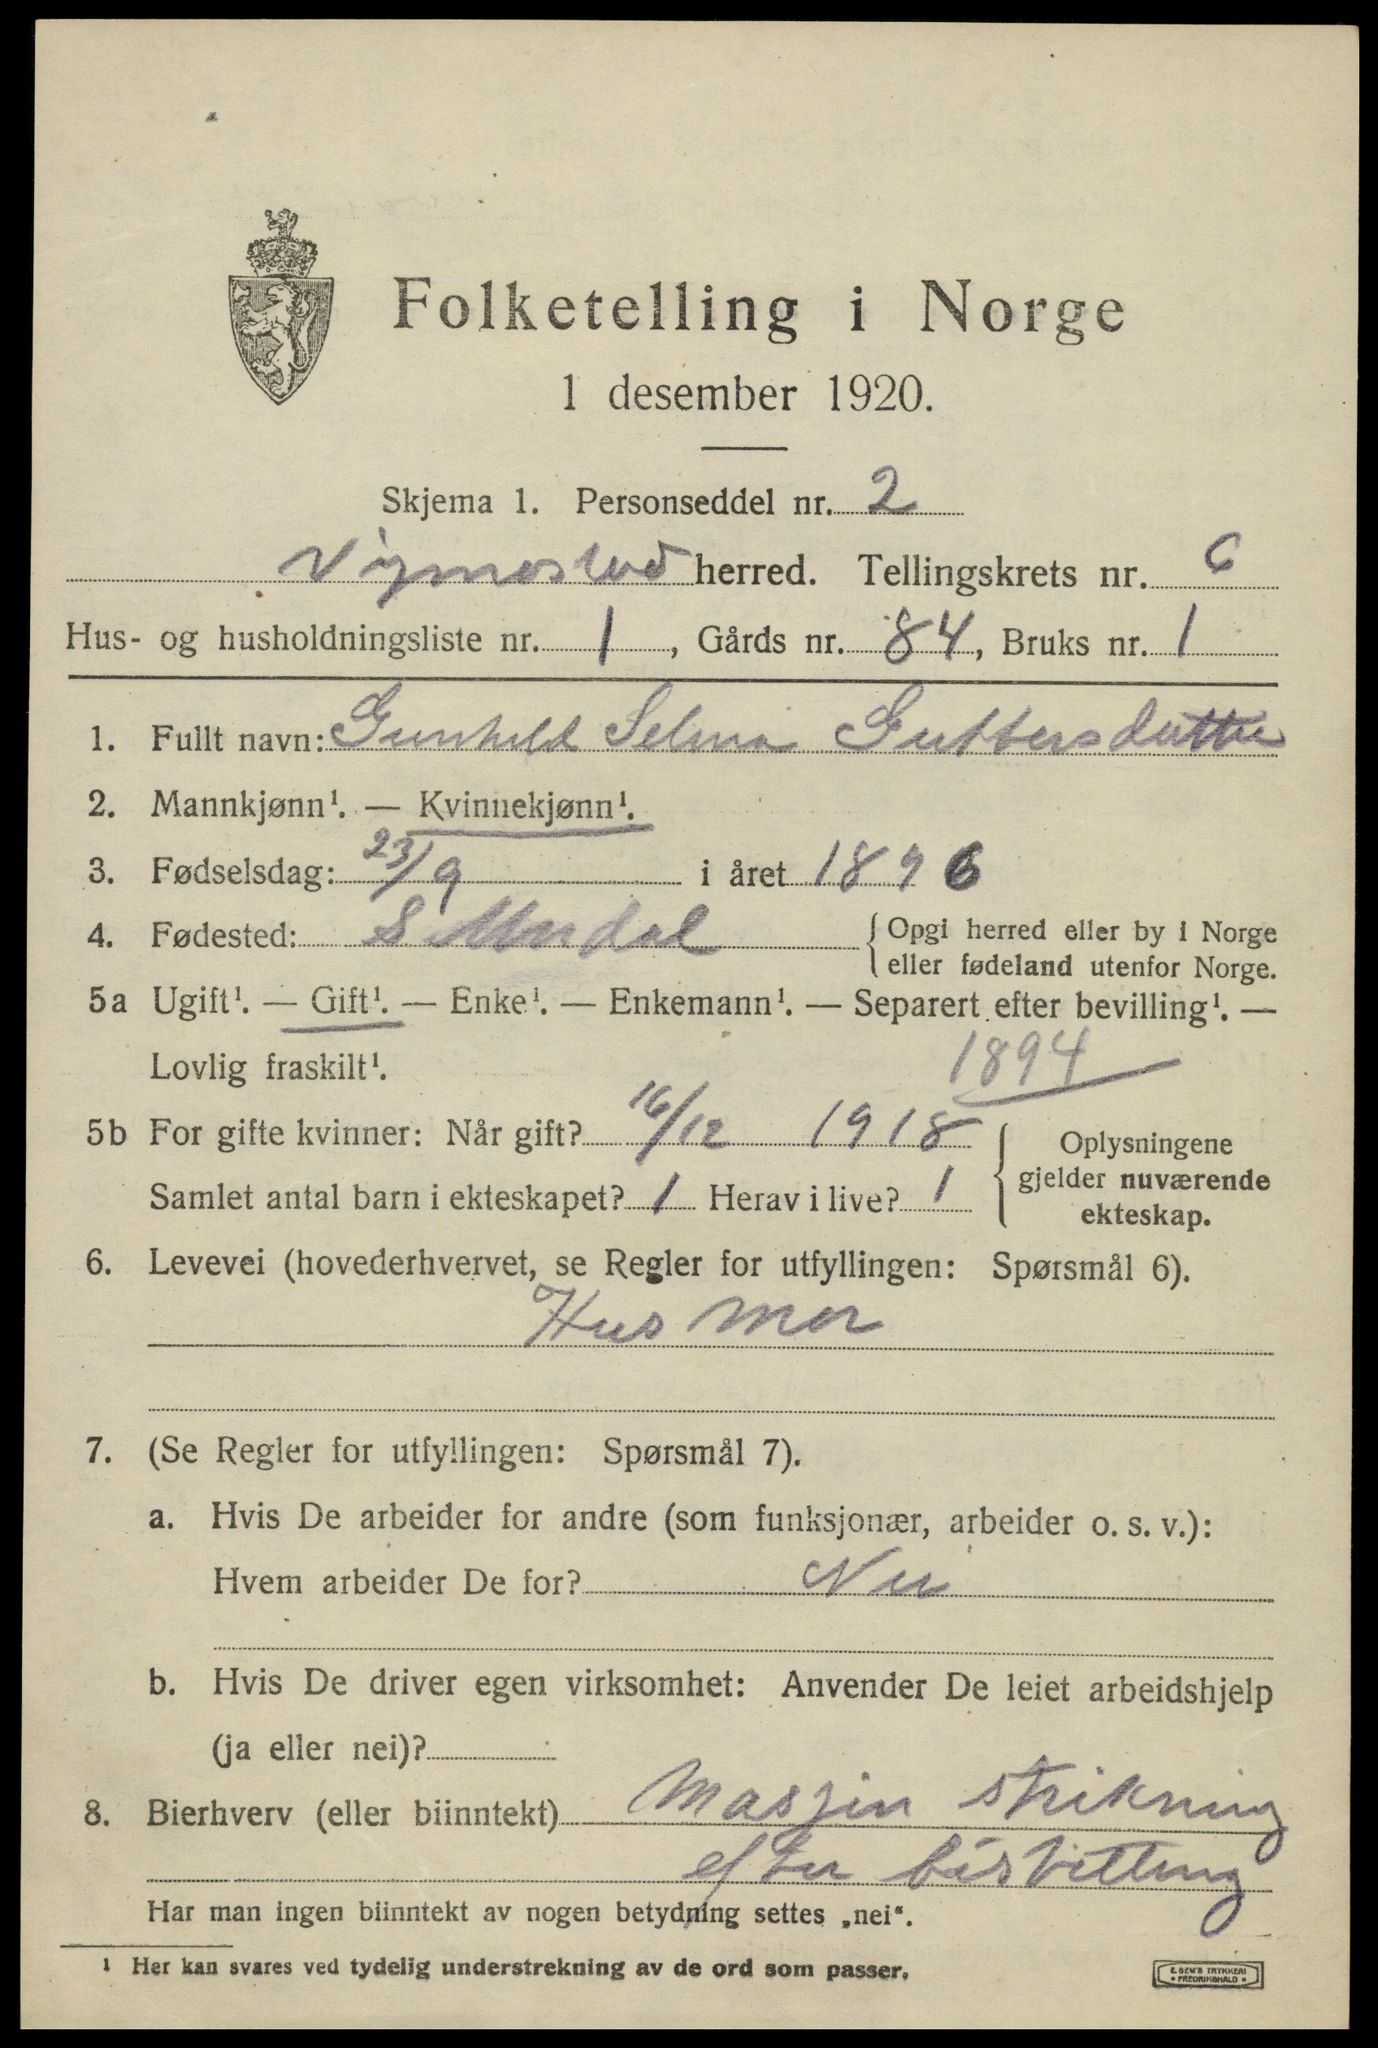 Folketelling i Norge
1 desember 1920.
Skjema 1. Personseddel nr. 2
Vigmostad herred. Tellingskrets nr. 6
Hus- og husholdningsliste nr. 1, Gårds nr. 84, Bruks nr. 1
1. Fullt navn: Gunhild Selma Guttorsdatter
2. Mannkjønn¹. — Kvinnekjønn¹.
3. Fødselsdag: 23/9 i året 1896
4. Fødested: S. Undal { Opgi herred eller by i Norge
eller fødeland utenfor Norge.
5a Ugift¹. — Gift¹. — Enke¹. — Enkemann¹. — Separert efter bevilling¹. —
Lovlig fraskilt¹. 1894
5b For gifte kvinner: Når gift? 16/12 1918
Samlet antal barn i ekteskapet? 1 Herav i live? 1
{ Oplysningene
gjelder nuværende
ekteskap.
6. Levevei (hovederhvervet, se Regler for utfyllingen: Spørsmål 6).
Husmor
7. (Se Regler for utfyllingen: Spørsmål 7).
a. Hvis De arbeider for andre (som funksjonær, arbeider o. s. v.):
Hvem arbeider De for? Nei
b. Hvis De driver egen virksomhet: Anvender De leiet arbeidshjelp
(ja eller nei)?
8. Bierhverv (eller biinntekt) Masjin strikning
efter
Har man ingen biinntekt av nogen betydning settes „nei“.
¹ Her kan svares ved tydelig understrekning av de ord som passer.
E. SEM'S TRYKKERI
FREDRIKSHALD